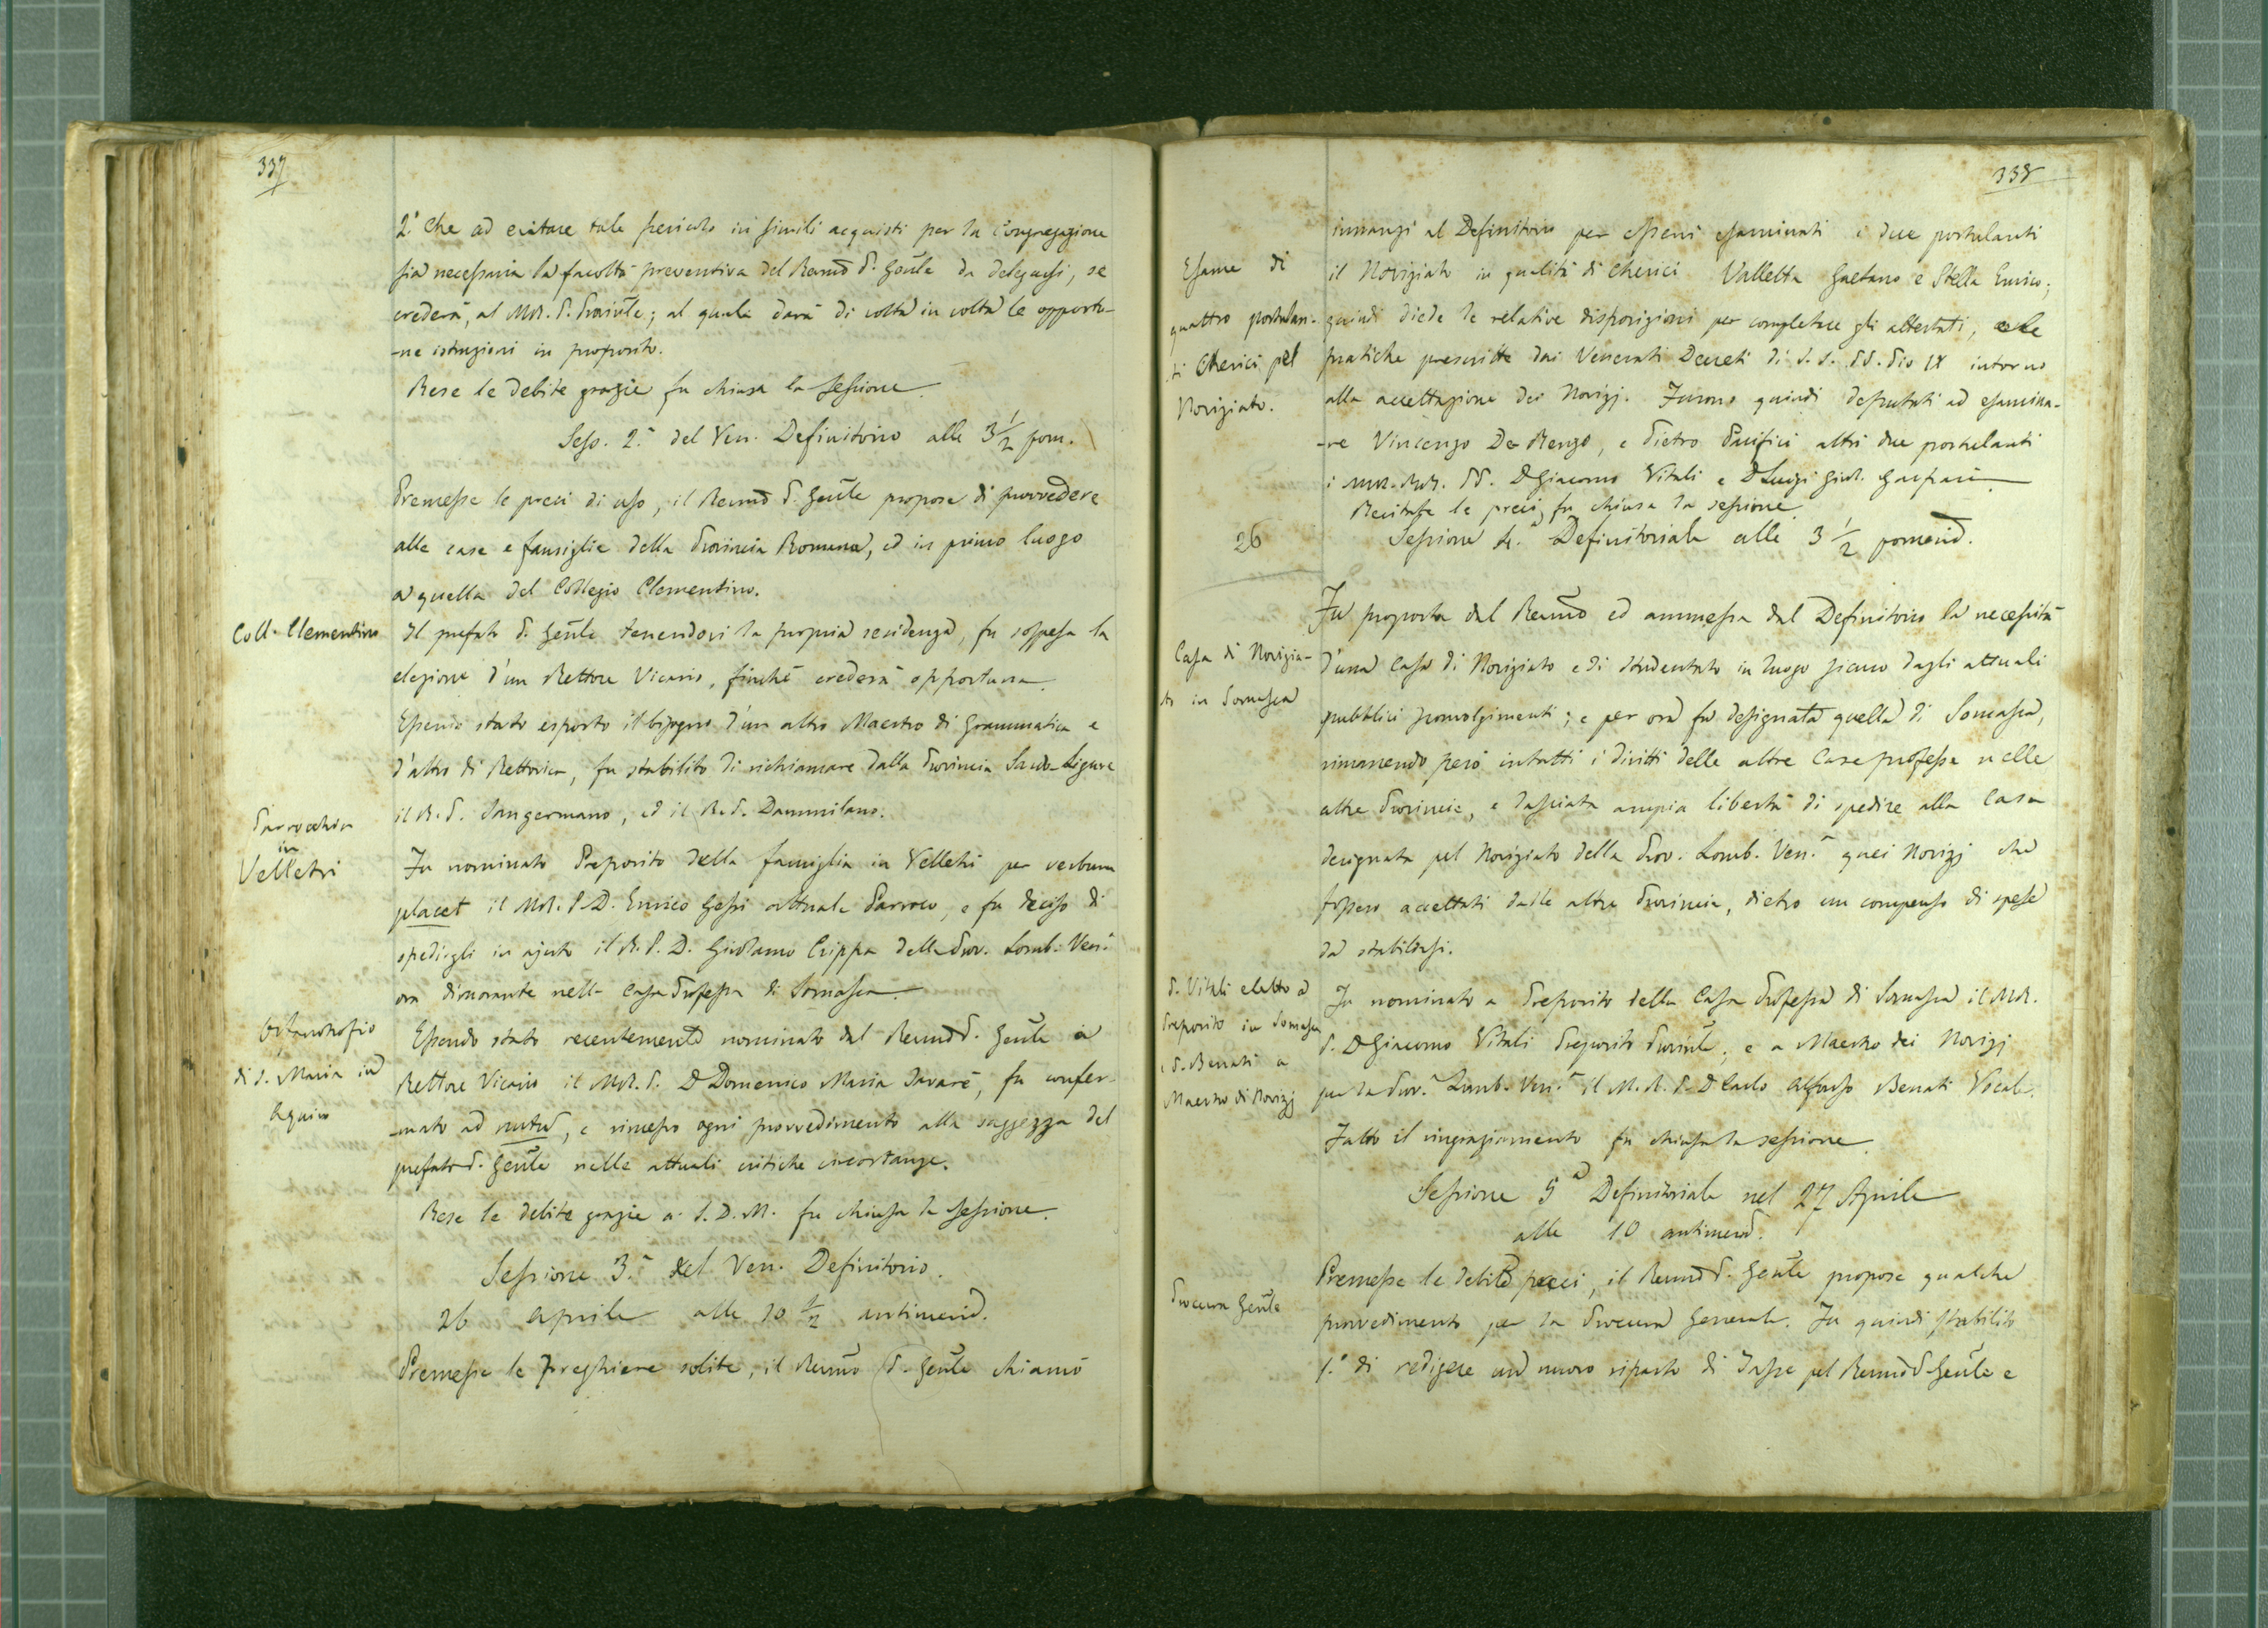 337
2.° Che ad evitare tale pericolo in simili acquisti per la Congregazione
sia necessaria la facoltà preventiva del Remo P. Gnle da delegarsi, se
crederà, al M.R. P. Provinle; al quale darà di volta in volta le opportu-
-ne istruzioni in proposito.
Rese le debite grazie fu chiusa la sessione.
Sess. 2.a del Ven. Definitorio alle 3 1/2 pom.
Premesse le preci di uso, il Remo P. Genle propose di provvedere
alle case e famiglie della Provincia Romana, ed in primo luogo
a quella del Collegio Clementino.
Coll. Clementino
Il prefato P. Genle tenendovi la propria residenza, fu sospesa la
elezione d'un Rettore Vicario, finchè crederà opportuna.
Essendo stato esposto il bisogno d'un altro Maestro di Grammatica e
d'altro di Rettorica, fu stabilito di richiamare dalla Provincia Sardo-Ligure
il R. P. Sangermano, ed il R. P. Dammilano.
Parrocchia
in
Velletri
Fu nominato Preposito della famiglia in Velletri per verbum
placet il M.R. P. D. Enrico Gessi attuale Parroco, e fu deciso di
spedirgli in ajuto il R. P. D. Girolamo Crippa della Prov. Lomb. Ven.a
ora dimorante nella Casa Professa di Somasca.
Orfanotrofio
di S. Maria in
Aquiro
Essendo stato recentemente nominato dal Remo P. Genle a
Rettore Vicario il M.R. P. D. Domenico Maria Savarè, fu confer-
-mato ad nutu, e rimesso ogni provvedimento alla saggezza del
prefato P. Genle nelle attuali critiche circostanze.
Rese le debite grazie a S. D. M. fu chiusa la sessione.
Sessione 3.a del Ven. Definitorio.
26 Aprile alle 10 1/2 antimerid.
Premesse le preghiere solite, il Remo P. Genle chiamò
338
innanzi al Definitorio per esservi esaminati i due postulanti
Esame di
quattro postulan-
ti Cherici pel
Noviziato.
il Noviziato in qualità di Cherici Valletta Gaetano e Stella Enrico;
quindi diede le relative disposizioni per completare gli attestati, e le
pratiche prescritte dai Venerati Decreti di S. S. PP. Pio IX intorno
alla accettazione dei Novizj. Furono quindi deputati ad esamina-
-re Vincenzo De-Renzo, e Pietro Pacifici altri due postulanti
i MM. RR. PP. D Giacomo Vitali e D Luigi Girol. Gaspari.
Recitate le preci, fu chiusa la sessione.
26
Sessione 4.a Definitoriale alle 3 1/2 pomerid.
Fu proposta dal Remo ed ammessa dal Definitorio la necessità
Casa di Novizia-
to in Somasca
d'una casa di Noviziato e di Studentato in luogo sicuro dagli attuali
pubblici sconvolgimenti; e per ora fu designata quella di Somasca,
rimanendo però intatti i diritti delle altre Case professe nelle
altre Provincie, e lasciata ampia libertà di spedire alla Casa
designata pel Noviziato della Prov. Lomb. Ven.a quei Novizj che
fossero accettati dalle altre Provincie, dietro un compenso di spese
da stabilirsi.
P. Vitali eletto a
Preposito in Somasca
e P. Benati a
Maestro di Novizj
Fu nominato a Preposito della Casa Professa di Somasca il M.R.
P. D Giacomo Vitali Preposito Provinle, e a Maestro dei Novizj
per la Prov.a Lomb. Ven.a il M. R. P. D Carlo Alfonso Benati Vocale.
Fatto il ringraziamento fu chiusa la sessione.
Sessione 5.a Definitoriale nel 27 Aprile
alle 10 antimerid.
Procura Genle
Premesse le debite preci, il Remo P. Genle propose qualche
provvedimento per la Procura Generale. Fu quindi stabilito
1.° di redigere un nuovo riparto di Tasse pel Remo P. Genle e